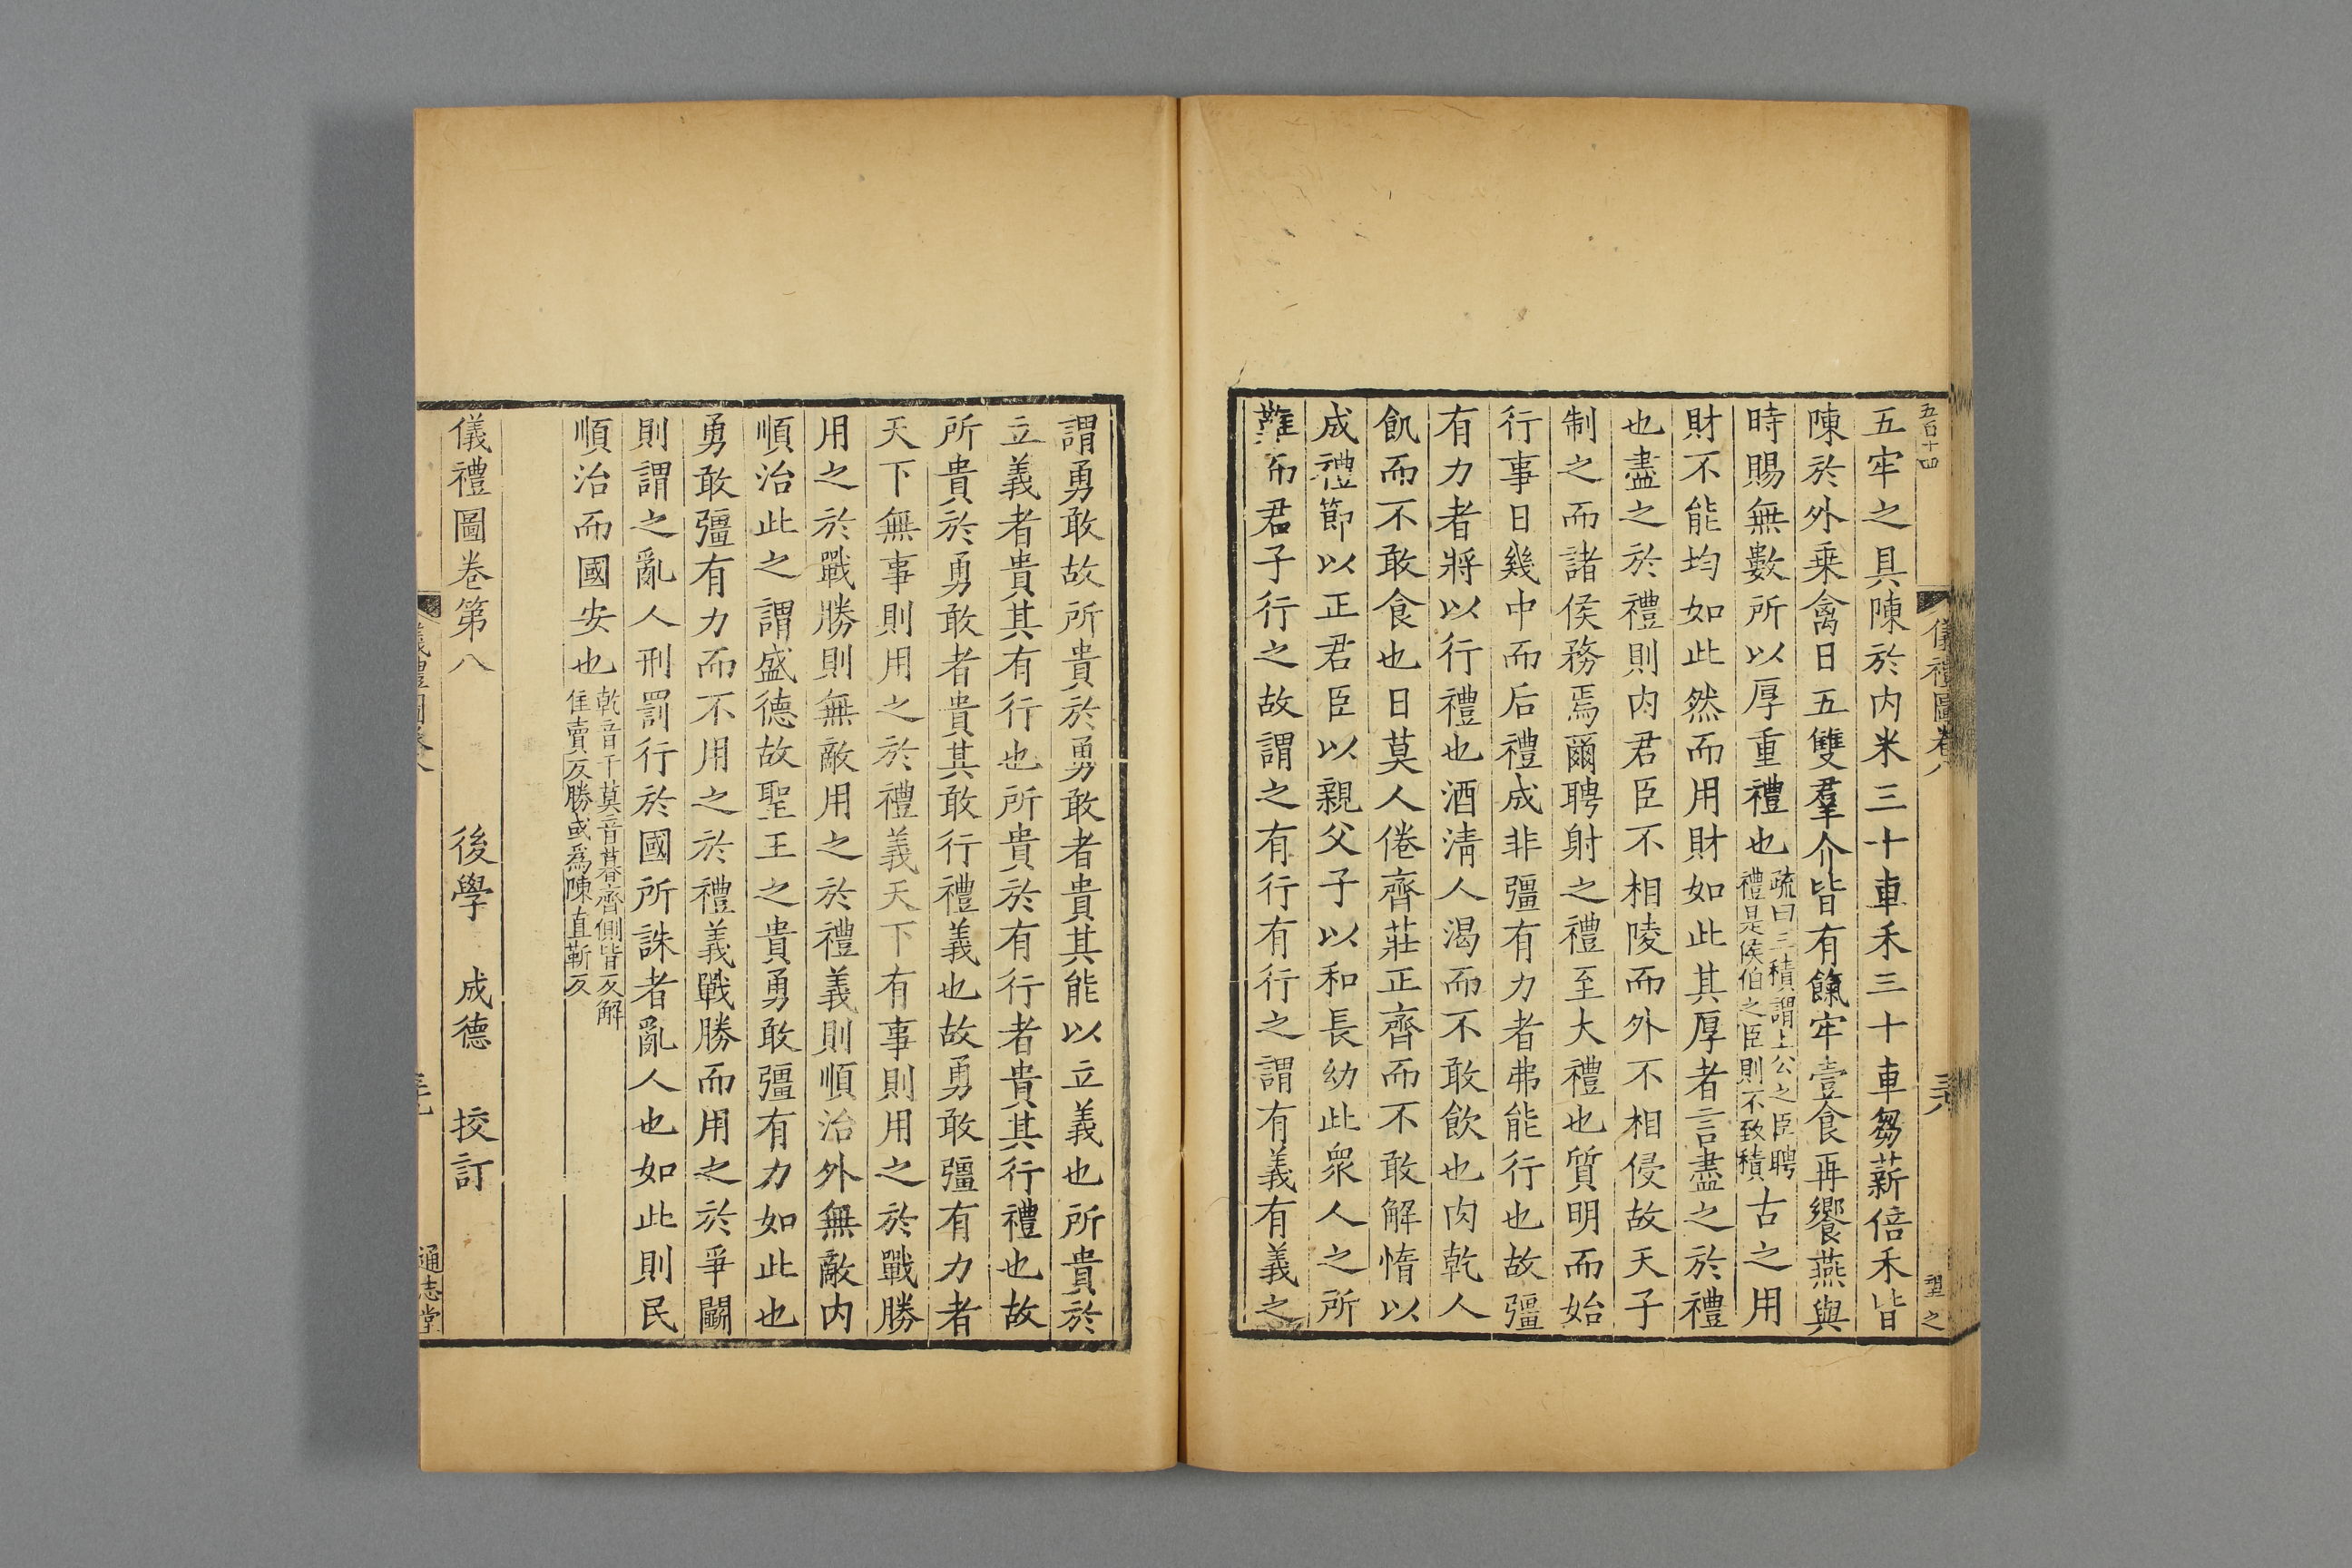 五百十四
儀禮圖卷八
三八
望之
五牢之具陳於内米三十車禾三十車芻薪倍禾皆
陳於外乗禽日五雙羣介皆有餼牢壹食再饗燕與
時賜無數所以厚重禮也
疏曰三積謂上公之臣聘
禮是侯伯之臣則不致積
古之用
財不能均如此然而用財如此其厚者言盡之於禮
也盡之於禮則内君臣不相陵而外不相侵故天子
制之而諸侯務焉爾聘射之禮至大禮也質明而始
行事日幾中而后禮成非彊有力者弗能行也故彊
有力者將以行禮也酒清人渴而不敢飲也肉乾人
飢而不敢食也日莫人倦齊莊正齊而不敢解惰以
成禮節以正君臣以親父子以和長幼此衆人之所
難而君子行之故謂之有行有行之謂有義有義之
謂勇敢故所貴於勇敢者貴其能以立義也所貴於
立義者貴其有行也所貴於有行者貴其行禮也故
所貴於勇敢者貴其敢行禮義也故勇敢彊有力者
天下無事則用之於禮義天下有事則用之於戰勝
用之於戰勝則無敵用之於禮義則順治外無敵内
順治此之謂盛德故聖王之貴勇敢彊有力如此也
勇敢彊有力而不用之於禮義戰勝而用之於爭鬬
則謂之亂人刑罰行於國所誅者亂人也如此則民
順治而國安也
乾音干莫音暮齊側皆反解
佳賣反勝或爲陳直靳反
儀禮圖卷第八　後學　成德　校訂
儀禮圖卷八
通志堂